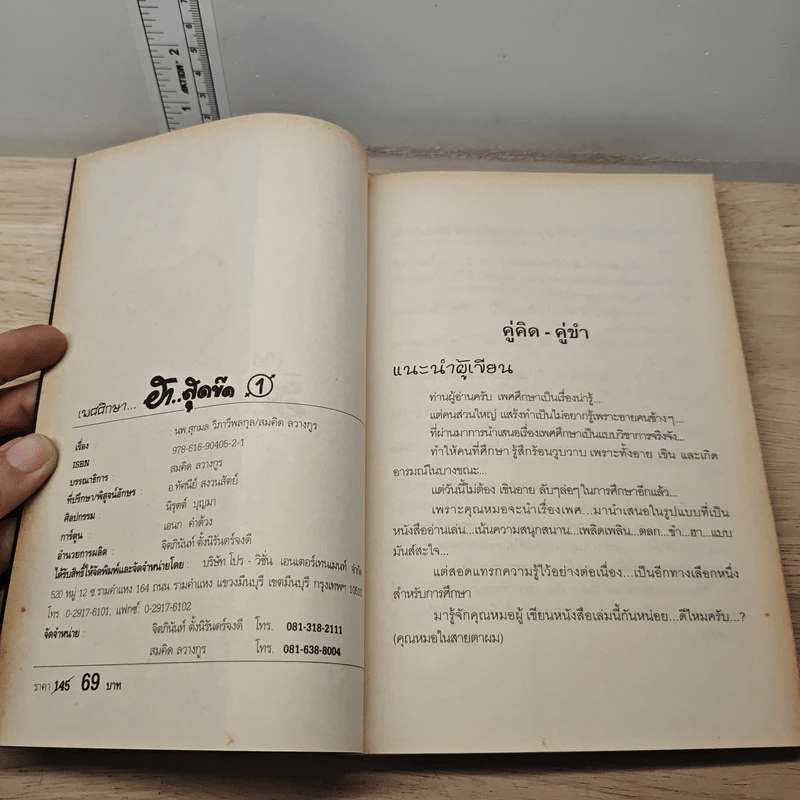 เพศศึกษา... ฮา..สุดขีด 1
เรื่อง : นพ.สุกมล วิภาวีพลกุล/สมคิด ลวางกูร
ISBN : 978-616-90405-2-1
บรรณาธิการ : สมคิด ลวางกูร
ที่ปรึกษา/พิสูจน์อักษร : อ.ทัศนีย์ สงวนสัตย์
ศิลปกรรม : นิรุตต์ บุญมา
การ์ตูน : เอนก คำด้วง
อำนวยการผลิต : จิตภินันท์ ตั้งนิรันดร์จงดี
ได้รับสิทธิ์ให้จัดพิมพ์และจัดจำหน่ายโดย : บริษัท โปร - วิชั่น เอนเตอร์เทนเมนท์ จำกัด
520 หมู่ 12 ซ.รามคำแหง 164 ถนน รามคำแหง แขวงมีนบุรี เขตมีนบุรี กรุงเทพฯ 10510
โทร. 0-2917-6101, แฟกซ์ 0-2917-6102
จัดจำหน่าย : จิตภินันท์ ตั้งนิรันดร์จงดี โทร. 081-318-2111
สมคิด ลวางกูร โทร. 081-638-8004
ราคา 145 69 บาท
คู่คิด - คู่ขำ
แนะนำผู้เขียน
ท่านผู้อ่านครับ เพศศึกษาเป็นเรื่องน่ารู้...
แต่คนส่วนใหญ่ แสร้งทำเป็นไม่อยากรู้เพราะอายคนข้างๆ...
ที่ผ่านมาการนำเสนอเรื่องเพศศึกษาเป็นแบบวิชาการจริงจัง...
ทำให้คนที่ศึกษา รู้สึกร้อนวูบวาบ เพราะทั้งอาย เขิน และเกิด
อารมณ์ในบางขณะ...
แต่วันนี้ไม่ต้อง เขินอาย ลับๆล่อๆ ในการศึกษาอีกแล้ว...
เพราะคุณหมอจะนำเรื่องเพศ...มานำเสนอในรูปแบบที่เป็น
หนังสืออ่านเล่น...เน้นความสนุกสนาน...เพลิดเพลิน...ตลก...ขำ...ฮา...แบบ
มันส์สะใจ...
แต่สอดแทรกความรู้ไว้อย่างต่อเนื่อง...เป็นอีกทางเลือกหนึ่ง
สำหรับการศึกษา
มารู้จักคุณหมอผู้ เขียนหนังสือเล่มนี้กันหน่อย...ดีไหมครับ...?
(คุณหมอในสายตาผม)